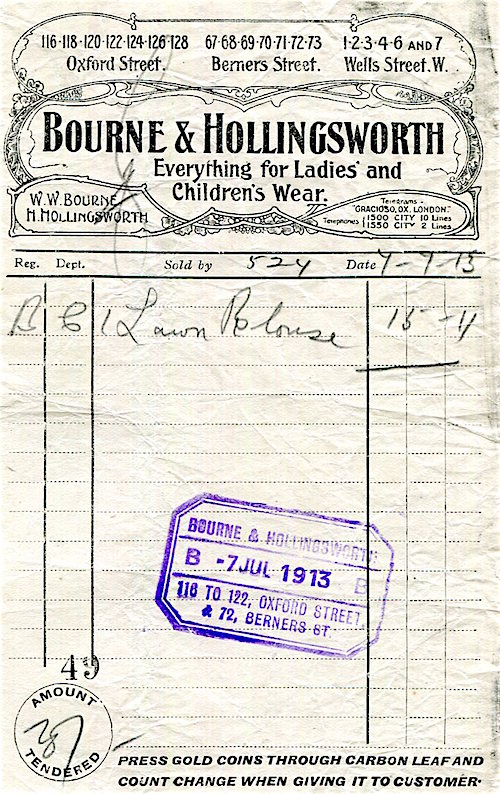 116·118·120·122·124·126·128 67·68·69·70·71·72·73 1·2·3·4·6 AND 7
Oxford Street. Berners Street. Wells Street. W.
BOURNE & HOLLINGSWORTH
Everything for Ladies' and
Children's Wear.
W. W. BOURNE
H. HOLLINGSWORTH
Telegrams -
"GRACIOSO, OX, LONDON."
Telephones 1500 CITY 10 Lines
1550 CITY 2 Lines
Reg. Dept. Sold by 524 Date 7-7-13
B C 1 Lawn Blouse 15-11
BOURNE & HOLLINGSWORTH
B -7 JUL 1913 B
116 TO 122, OXFORD STREET,
& 72, BERNERS ST.
49
AMOUNT
TENDERED
PRESS GOLD COINS THROUGH CARBON LEAF AND
COUNT CHANGE WHEN GIVING IT TO CUSTOMER.